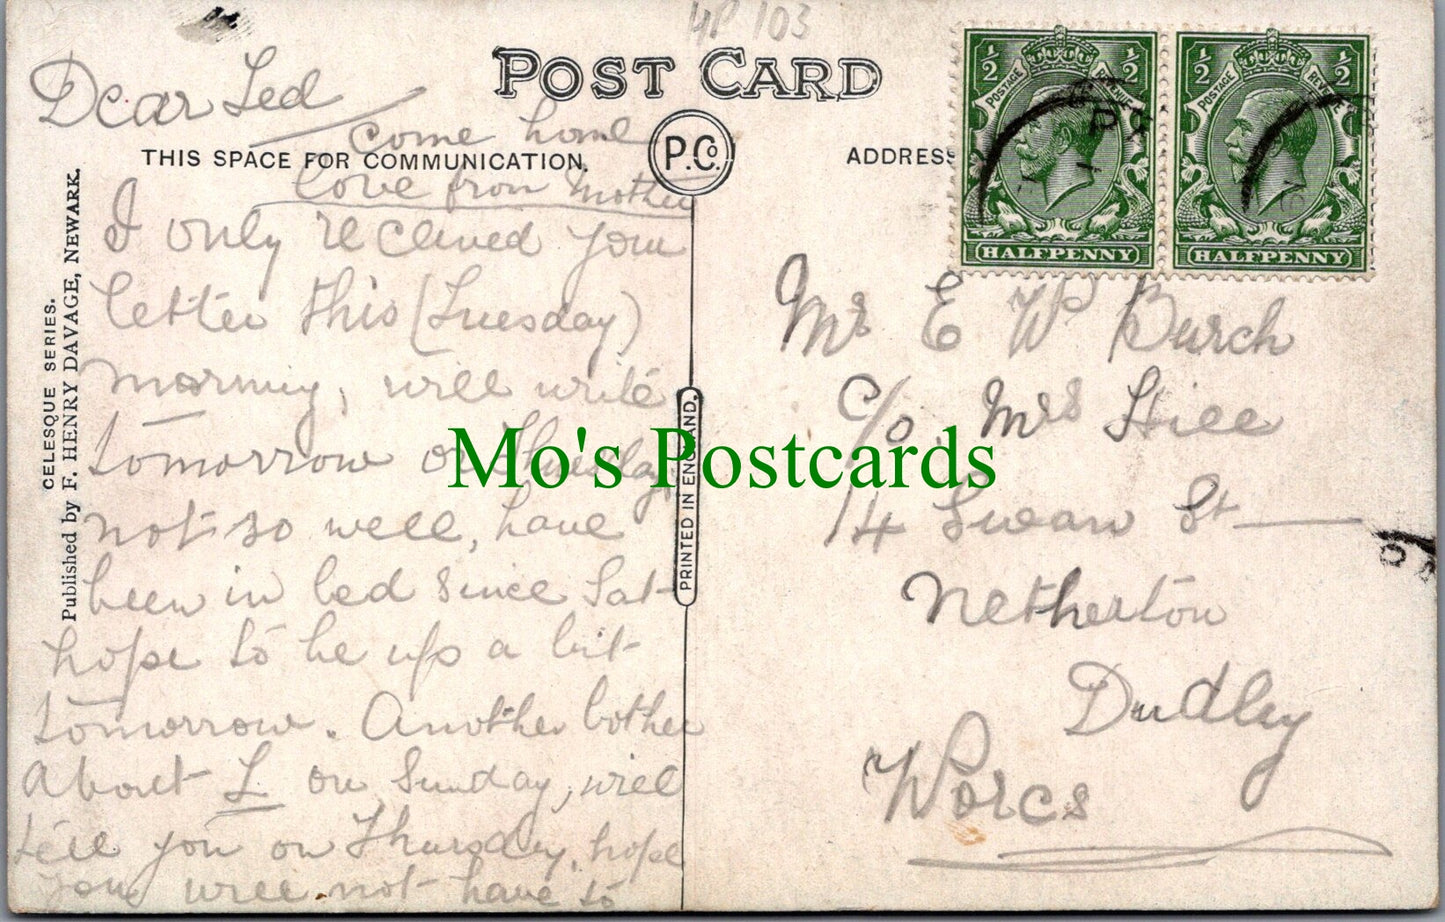 HP 103
POST CARD
THIS SPACE FOR COMMUNICATION.
P.Co.
ADDRESS
Dear Ted
I only received your
letter this (Tuesday)
morning, will write
tomorrow or Thursday,
not so well, have
been in bed since Sat-
hope to be up a bit
tomorrow. Another bother
about L on Sunday, will
tell you on Thursday, hope
you will not have to
come home
love from Mother
CELESQUE SERIES.
Published by F. HENRY DAVAGE, NEWARK.
PRINTED IN ENGLAND.
½ ½
POSTAGE REVENUE
HALFPENNY
½ ½
POSTAGE REVENUE
HALFPENNY
Mr E W Burch
c/o. Mrs Hill
14 Swan St
Netherton
Dudley
Worcs
Mo's Postcards